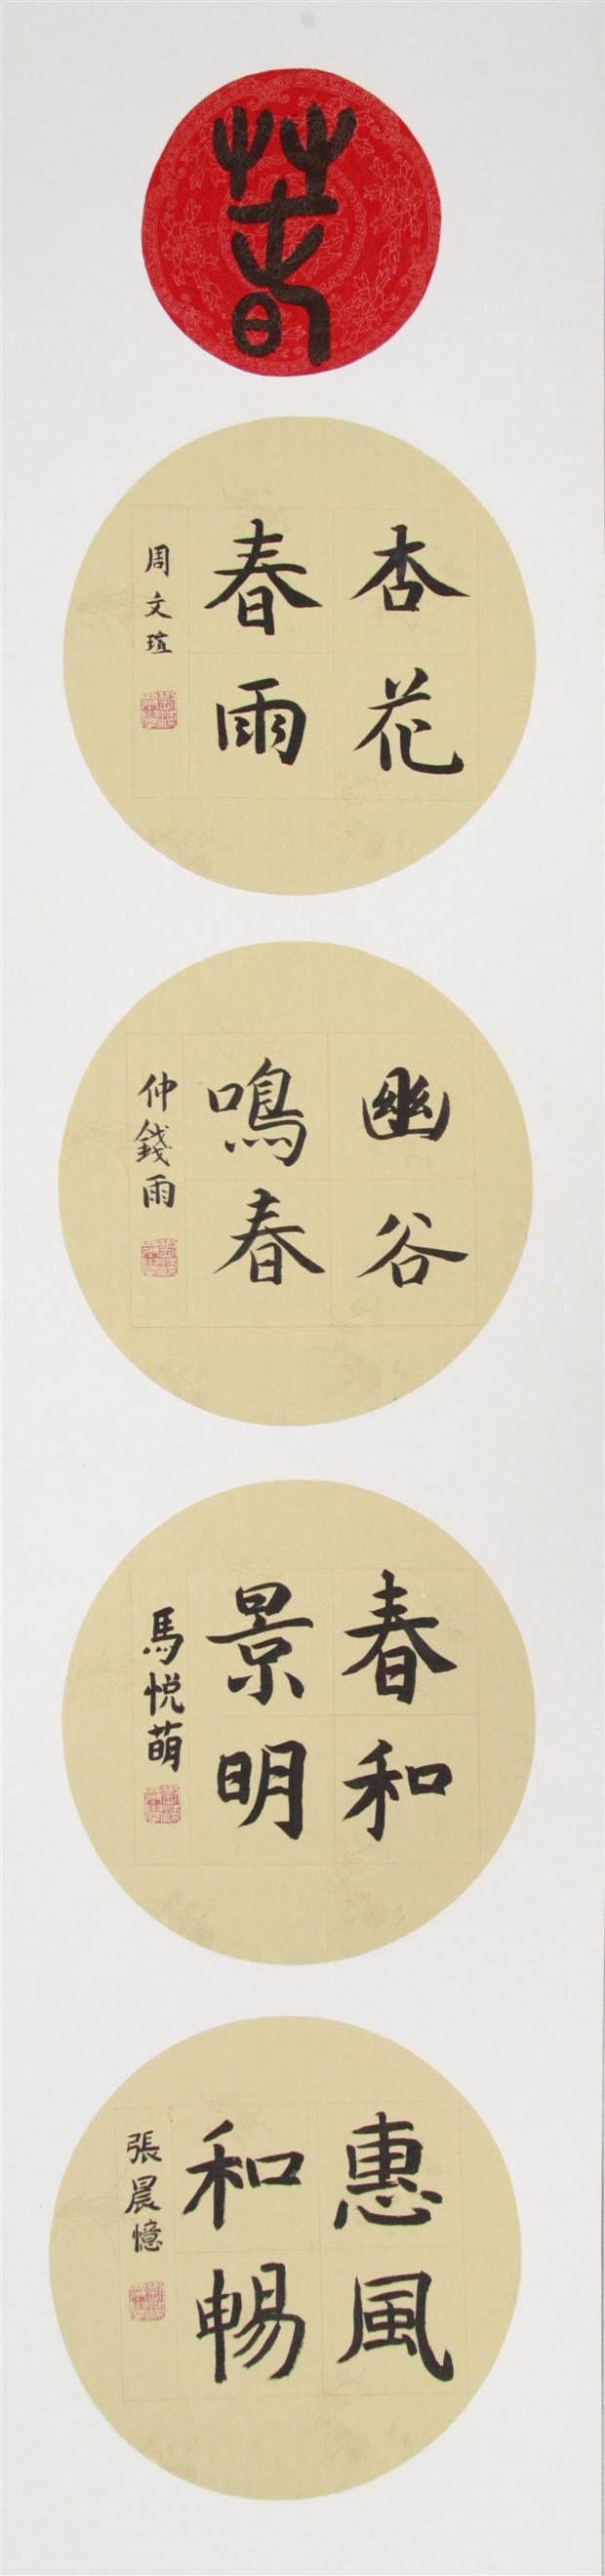 春
杏花
春雨
周文瑄
幽谷
鳴春
仲錢雨
春和
景明
馬悅萌
惠風
和暢
張晨憶